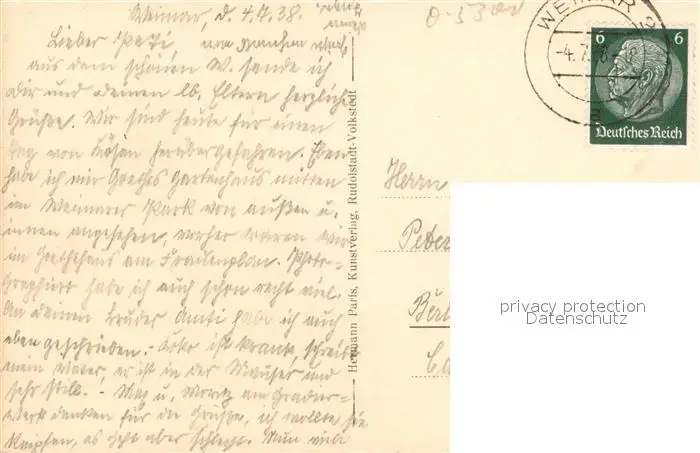 Weimar, d. 4.7.38.
Lieber Peti,
aus dem schönen W. sende ich
Dir und deinen lb. Eltern herzliche
Grüße. Wir sind heute für einen
Tag von Kösen herübergefahren. Eben
habe ich mir Goethes Gartenhaus mitten
im Weimarer Park von außen u.
innen angesehen, vorher waren wir
im Goethehaus am Frauenplan. Photo-
graphiert habe ich auch schon recht viel.
An deinen Bruder habe ich auch
eben geschrieben. - ist krank, schreibt
mein Vater, er ist in der Mauser und
sehr still. - Max u. Moritz am Gradier-
werk danken für die Grüße, ich wollte sie
knipsen, es geht aber schlecht. Nun viele
Hermann Paris, Kunstverlag, Rudolstadt-Volkstedt
WEIMAR 2
-4.7.
6 6
Deutsches Reich
Herrn
Peter
Berl
privacy protection
Datenschutz